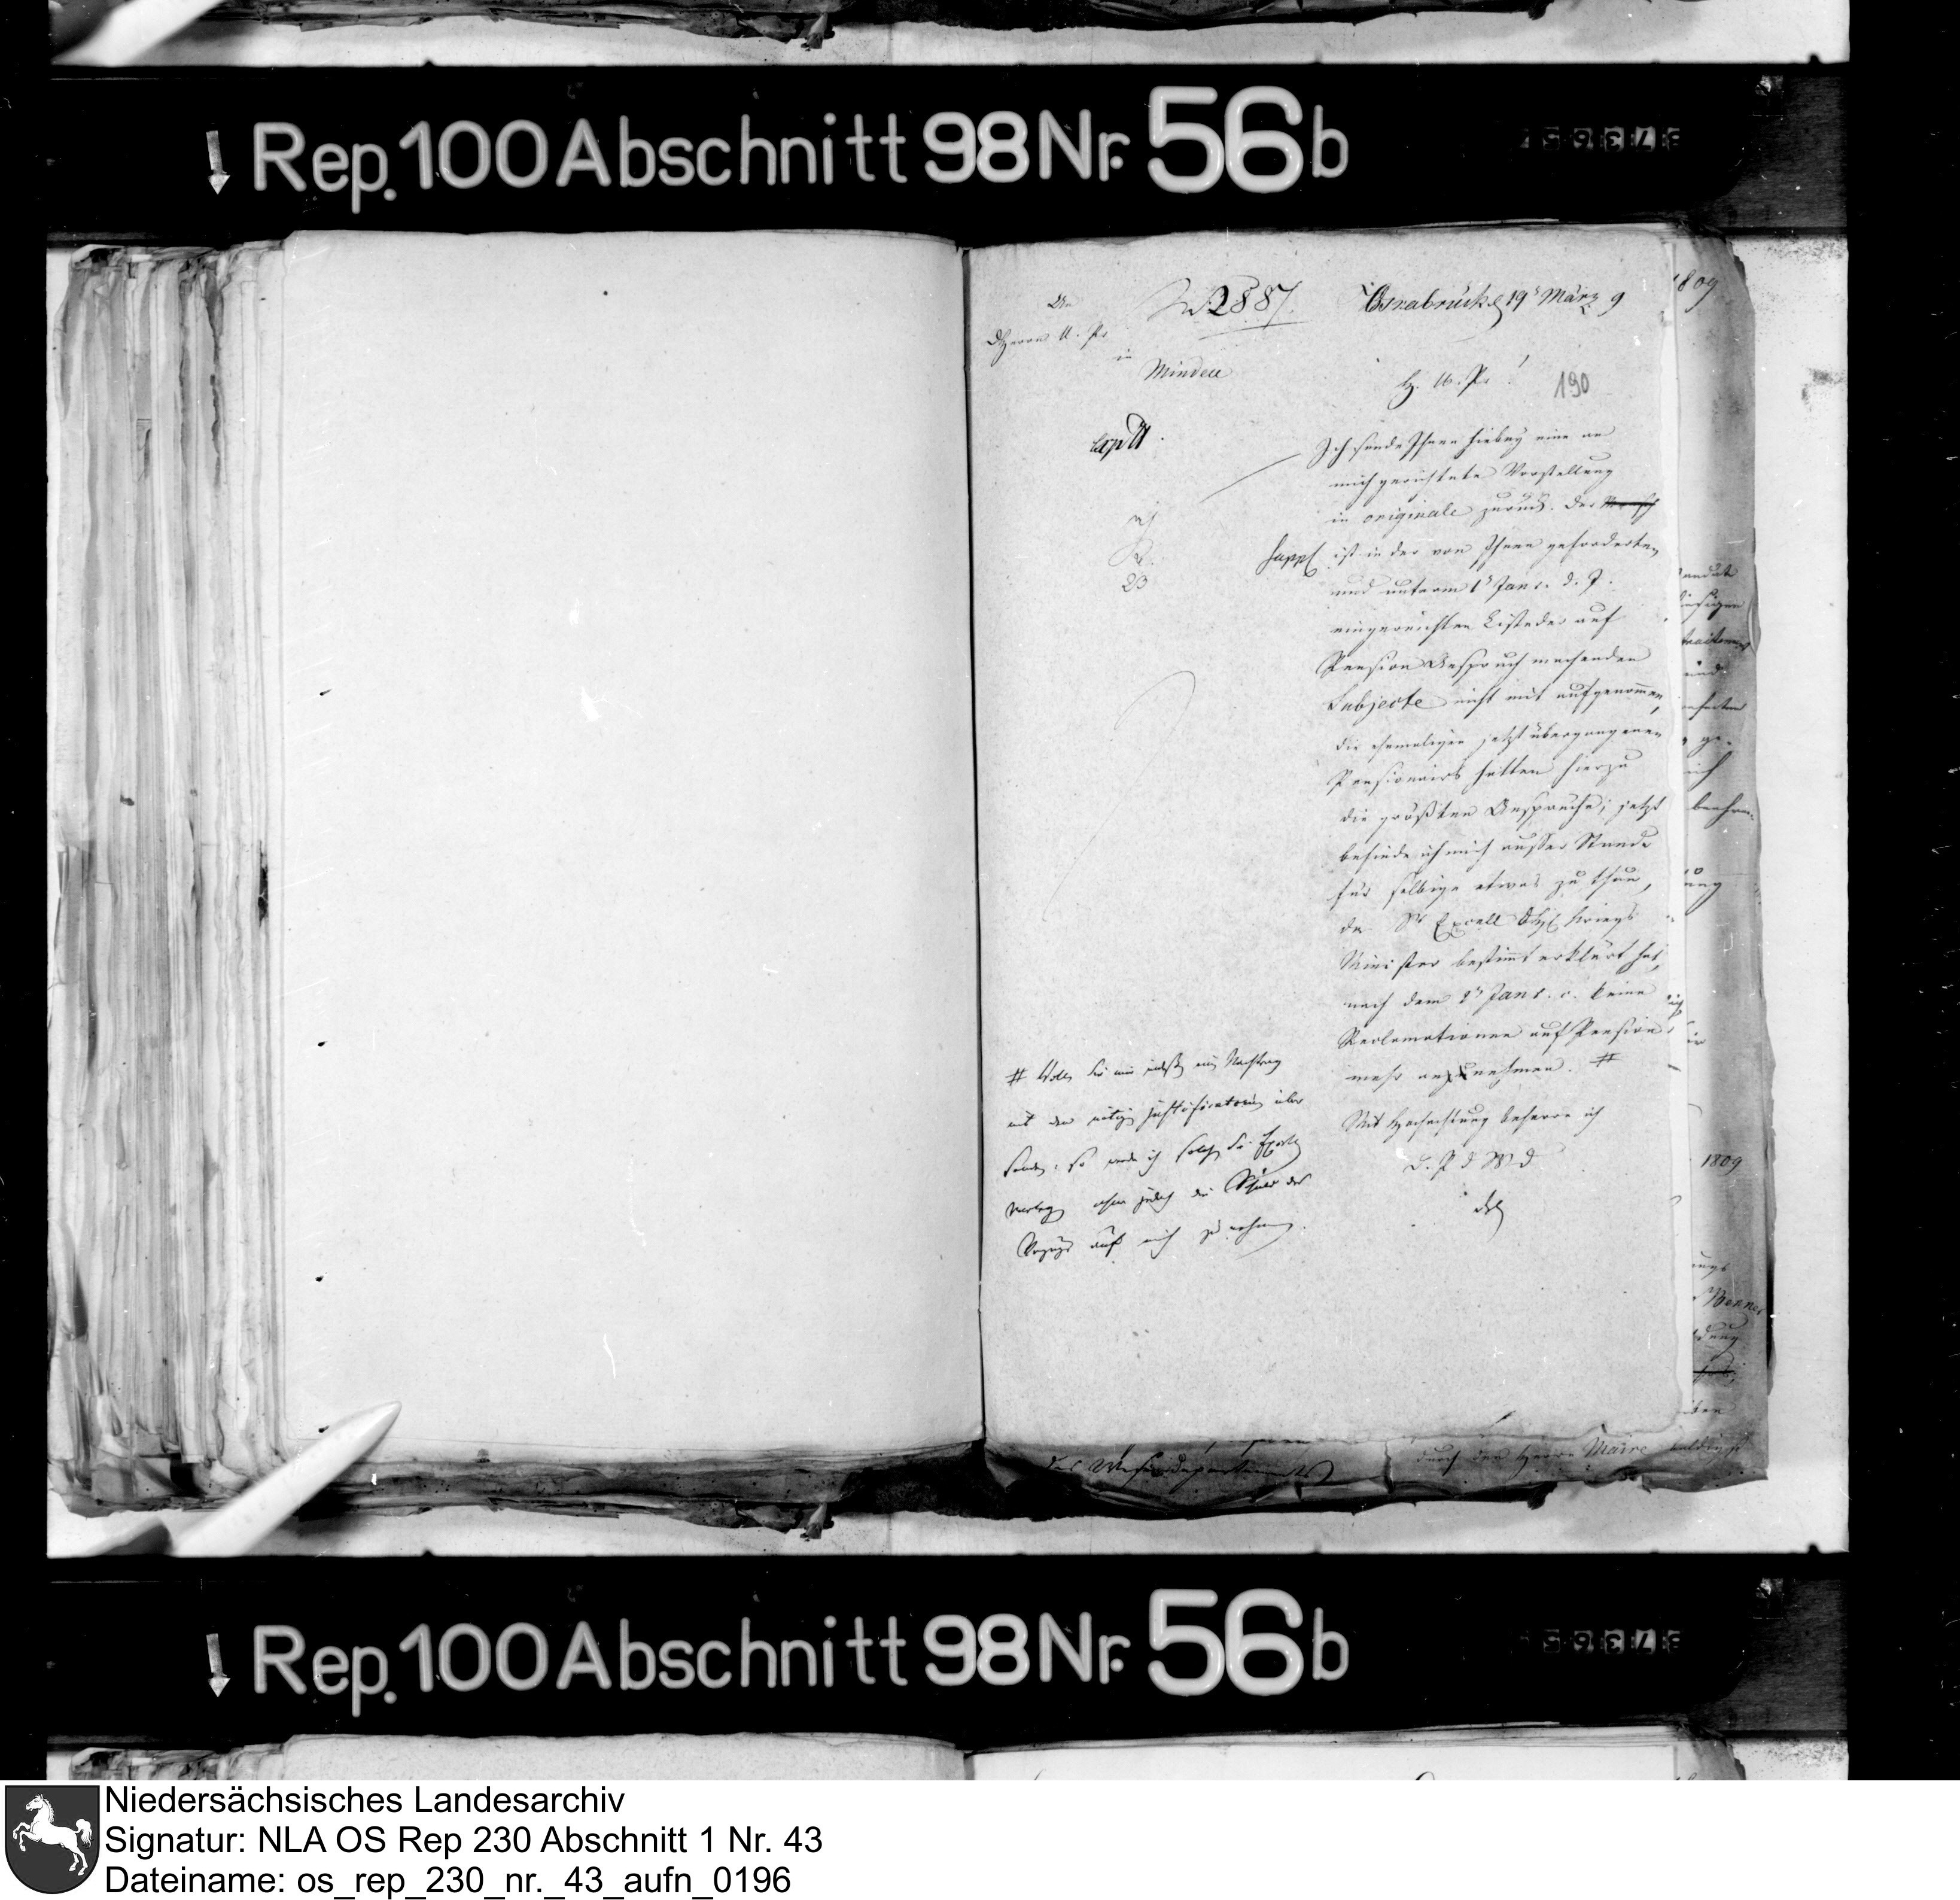 Rep. 100 Abschnitt 98 Nr. 56b
1809
An
Herrn U. Pr.
in
Minden
2887.
Osnabrück d 19n März 9
H. U. Pr.!
190
exp
Ich sende Ihnen hiebey eine an
mich gerichtete Vorstellung
in originale zurück. Der
Suppl. ist in der von Ihnen geforderten
und unterm 1n Janr. d. J.
eingereichten Liste der auf
Pension Anspruch machenden
Subjecte nicht mit aufgenommen,
die ehemaligen jetzt übergangenen
Pensionairs hätten hierzu
die größten Ansprüche; jetzt
befinde ich mich ausser Stande
für selbige etwas zu thun,
da Sr Excell. Kriegs
Minister bestimmt erklärt hat,
nach dem 1n Janr. c. keine
Reclamationen auf Pension
mehr anzunehmen. #
Mit Hochachtung beharre ich
D. P d W d
# Wollen Sie mir einen Nachtrag
mit den nötigen justificatorien über
senden, so werde ich solchen Sr Excellenz
vorlegen ohne jedoch die Schuld des
Verzugs auf mich zu nehmen.
des Weserdepartements
durch den Herrn Maire
1809
Rep. 100 Abschnitt 98 Nr. 56b
Niedersächsisches Landesarchiv
Signatur: NLA OS Rep 230 Abschnitt 1 Nr. 43
Dateiname: os_rep_230_nr._43_aufn_0196